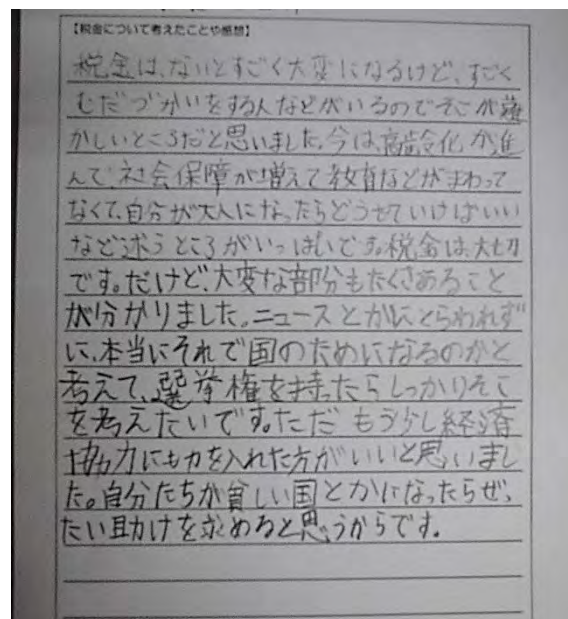 【税金について考えたことや感想】
税金は、ないとすごく大変になるけど、すごく
むだづかいをする人などがいるのでそこが難
かしいところだと思いました。今は、高齢化が進
んで社会保障が増えて教育などがまわって
なくて、自分が大人になったらどうせていけばいい
など迷うところがいっぱいです。税金は大切
です。だけど、大変な部分もたくさあること
が分かりました。ニュースとかにとらわれず
に、本当にそれで国のためになるのかと
考えて、選挙権を持ったらしっかりそこ
を考えたいです。ただもう少し経済
協力にも力を入れた方がいいと思いまし
た。自分たちが貧しい国とかになったらぜっ
たい助けを求めると思うからです。